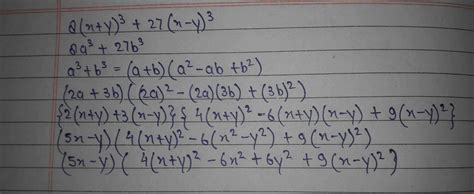 8(x+y)³ + 27(x-y)³
8a³ + 27b³
a³+b³ = (a+b)(a²-ab+b²)
(2a+3b)((2a)²-(2a)(3b)+(3b)²)
{2(x+y)+3(x-y)}{4(x+y)²-6(x+y)(x-y)+9(x-y)²}
(5x-y)(4(x+y)²-6(x²-y²)+9(x-y)²)
(5x-y)(4(x+y)²-6x²+6y²+9(x-y)²}